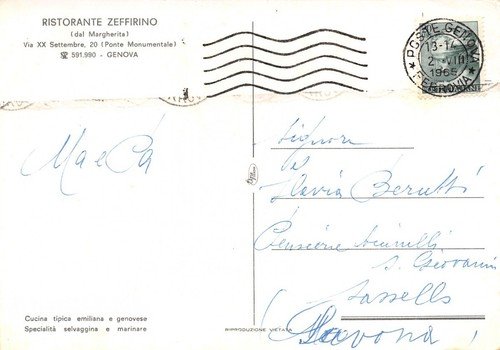 RISTORANTE ZEFFIRINO
(dal Margherita)
Via XX Settembre, 20 (Ponte Monumentale)
☎ 591.990 - GENOVA
POSTE GENOVA
13-14
1965
FERROVIA
Ma e Pa
Signora
Flavia Berutti
Pensione
S. Giovanni
Sassello
(Savona)
Cucina tipica emiliana e genovese
Specialità selvaggina e marinare
RIPRODUZIONE VIETATA